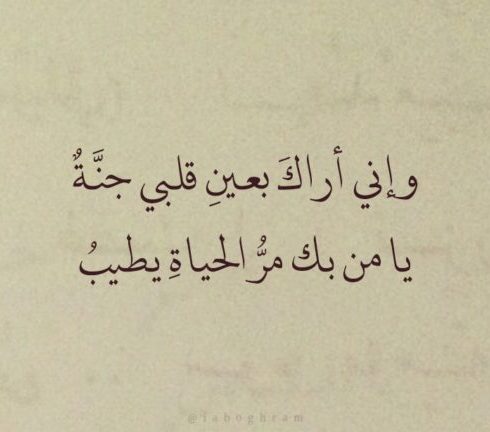 وإني أراكَ بعينِ قلبي جنَّةٌ
يا من بك مرُّ الحياةِ يطيبُ
@laboghram